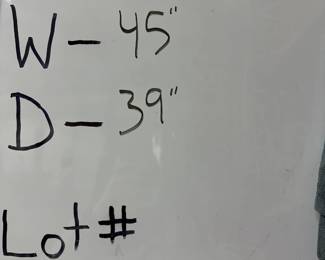 W - 45"
D - 39"
Lot #